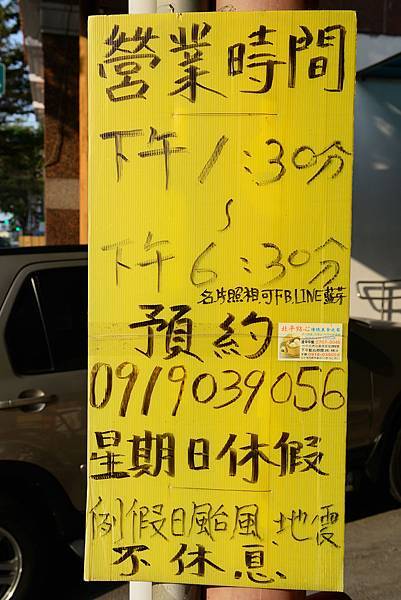 營業時間
下午1:30分
~
下午6:30分
名片照相可FB.LINE蘇芽
預約
0919039056
星期日休假
例假日颱風 地震
不休息
北平點心